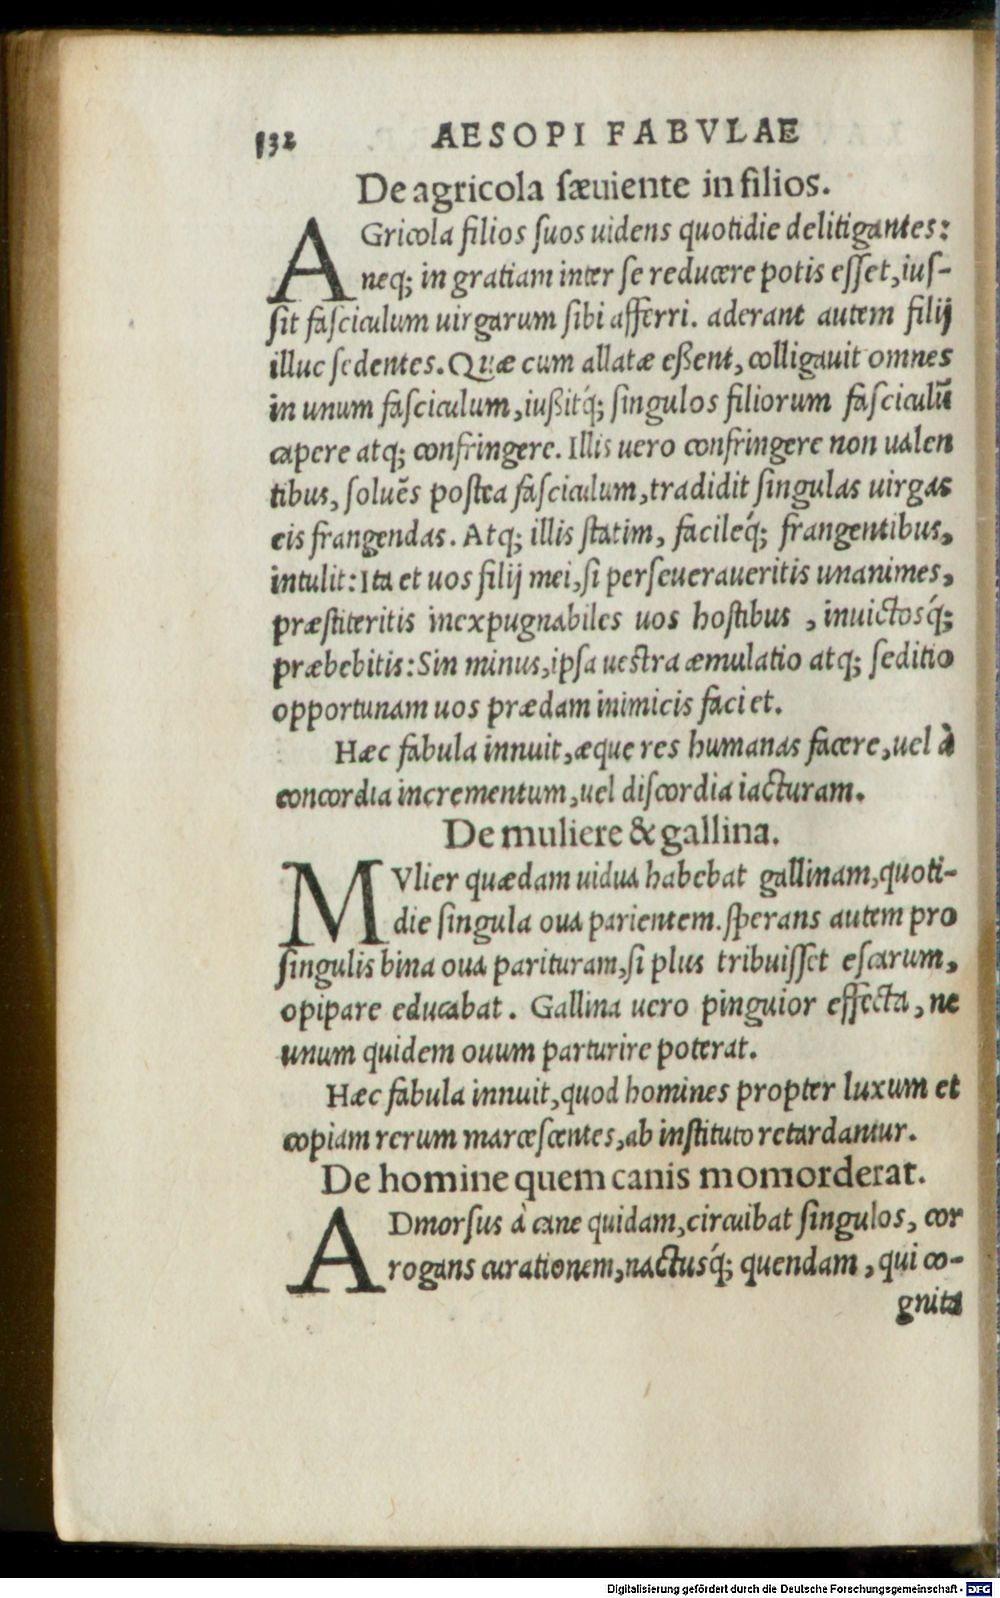 132 AESOPI FABVLAE
De agricola sæuiente in filios.
AGricola filios suos uidens quotidie delitigantes:
neq; in gratiam inter se reducere potis esset, ius-
sit fasciculum uirgarum sibi afferri. aderant autem filij
illuc sedentes. Quæ cum allatæ eßent, colligauit omnes
in unum fasciculum, iußitq́; singulos filiorum fasciculū
capere atq; confringere. Illis uero confringere non ualen
tibus, soluēs postea fasciculum, tradidit singulas uirgas
eis frangendas. Atq; illis statim, facileq́; frangentibus,
intulit: Ita et uos filij mei, si perseueraueritis unanimes,
præstiteritis inexpugnabiles uos hostibus, inuictosq́;
præbebitis: Sin minus, ipsa uestra æmulatio atq; seditio
opportunam uos prædam inimicis faciet.
Hæc fabula innuit, æque res humanas facere, uel à
concordia incrementum, uel discordia iacturam.
De muliere & gallina.
MVlier quædam uidua habebat gallinam, quoti-
die singula oua parientem. sperans autem pro
singulis bina oua parituram, si plus tribuisset escarum,
opipare educabat. Gallina uero pinguior effecta, ne
unum quidem ouum parturire poterat.
Hæc fabula innuit, quod homines propter luxum et
copiam rerum marcescentes, ab instituto retardantur.
De homine quem canis momorderat.
ADmorsus à cane quidam, circuibat singulos, cor
rogans curationem, nactusq́; quendam, qui co-
gnita
Digitalisierung gefördert durch die Deutsche Forschungsgemeinschaft - DFG